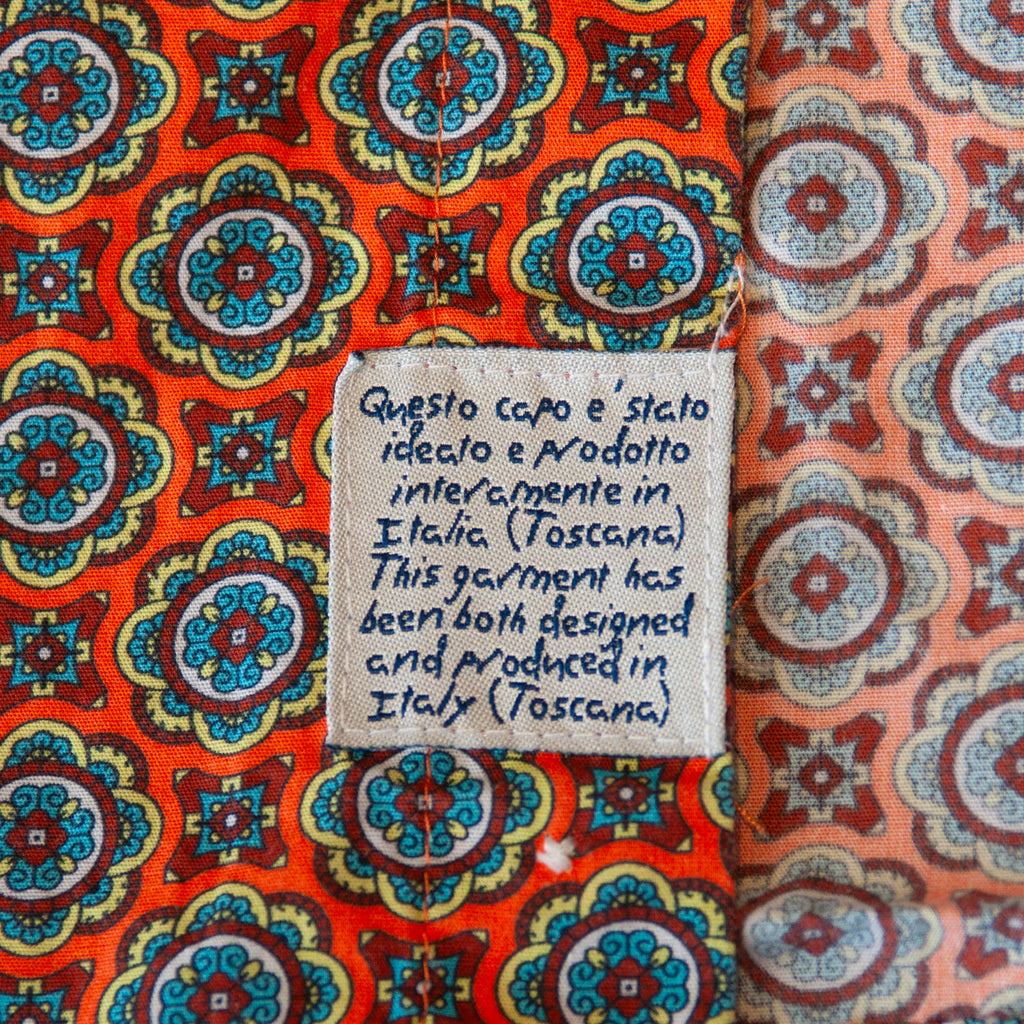 Questo capo e' stato
ideato e prodotto
interamente in
Italia (Toscana)
This garment has
been both designed
and produced in
Italy (Toscana)